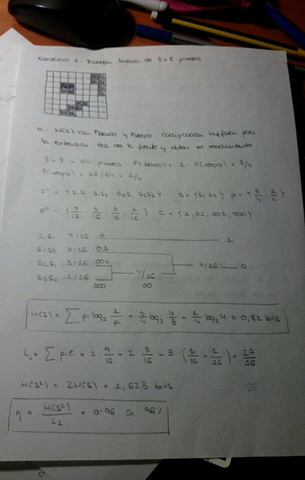 Ejercicio 2. Imagen binaria de 8x8 puntos
a. H(S) con Blanco y Negro. Codificación Huffman para
la extensión dos de la fuente y obtén el rendimiento.
8 x 8 = 64 puntos P(blanco) = 1 - P(negro) = 3/4
P(negro) = 16/64 = 1/4
S² = {S₁S₁ S₁S₂ S₂S₁ S₂S₂} S = {S₁ S₂} P = {3/4, 1/4}
P² = {9/16 3/16 3/16 1/16} C = {1, 01, 001, 000}
S₁S₁ 9/16 1 1
S₁S₂ 3/16 01
S₂S₁ 3/16 001 7/16 0
S₂S₂ 1/16 4/16
000 00
H(S) = ∑ pᵢ log₂ 1/pᵢ = 3/4 log₂ 4/3 + 1/4 log₂ 4 = 0,81 bits
L₂ = ∑ pᵢ lᵢ = 1 9/16 + 2 3/16 + 3 (3/16 + 1/16) = 27/16
H(S²) = 2H(S) = 1,623 bits
η = H(S²)/L₂ = 0'96 ≅ 96%